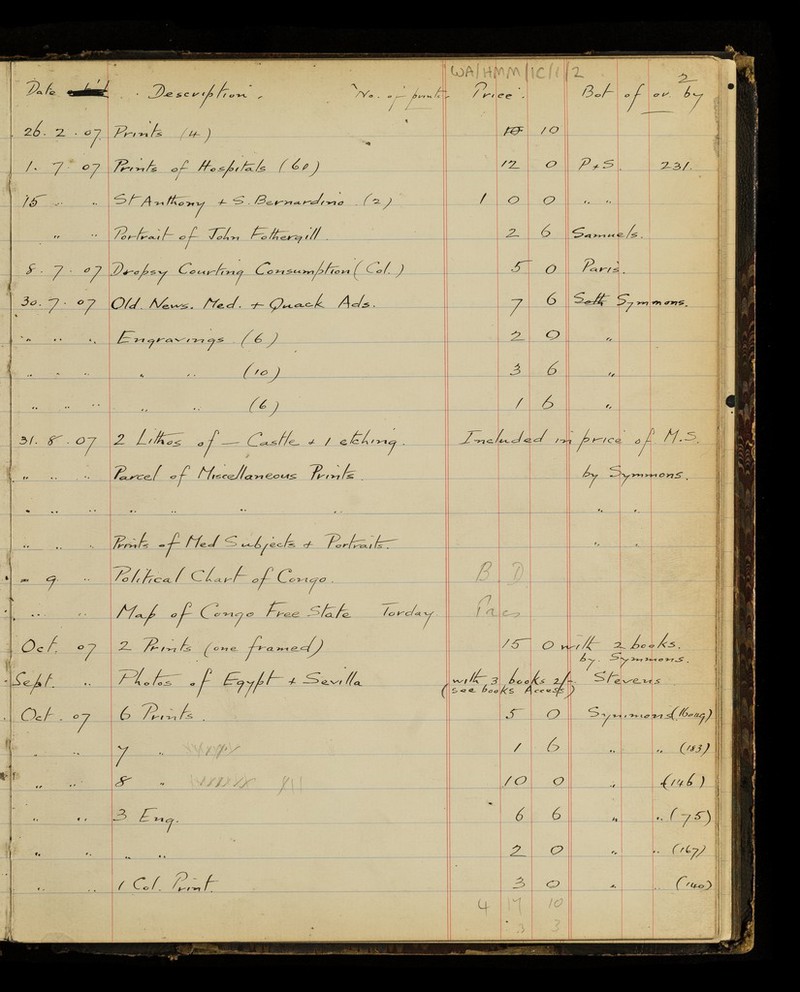 WA/HMM/IC/1/2
2
Date Description. No. of prints Price. Bot of or. by
26. 2. 07 Prints (4) 10 / 10
1. 7 07 Prints of Hospitals (60) 12 0 P+S. 231.
15 " " St Anthony + S. Bernardino (2) 1 0 0 " "
" " Portrait of John Fothergill. 2 6 Samuels.
8. 7. 07 Dropsy Courting Consumption (Col.) 5 0 Paris.
30. 7. 07 Old. News. Med. + Quack Ads. 7 6 Seth Symmons.
" " " Engravings (6) 2 0 "
" " " " " (10) 3 6 "
" " " " " (6) 1 6 "
31. 8. 07 2 Lithos of — Castle + 1 etching. Included in price of M.S.
" " " Parcel of Miscellaneous Prints. by Symmons.
" " " " " " " " "
" " " Prints of Med Subjects + Portraits. " "
" 9 " Political Chart of Congo. B. D
" " " Map of Congo Free State Torday
Oct. 07 2 Prints (one framed) 15 0 with 2 books.
by. Symmons.
Sept. " Photos of Egypt + Sevilla with 3 books 2/-. Stevens
(see books Access)
Oct. 07 6 Prints. 5 0 Symmons
" " 7 " 1 6 " " (183)
" " 8 " 10 0 " (146)
" " 3 Eng. 6 6 " " (75)
" " " " 2 0 " " (167)
" " 1 Col. Print. 3 0 " " (140)
4 17 10
3 3